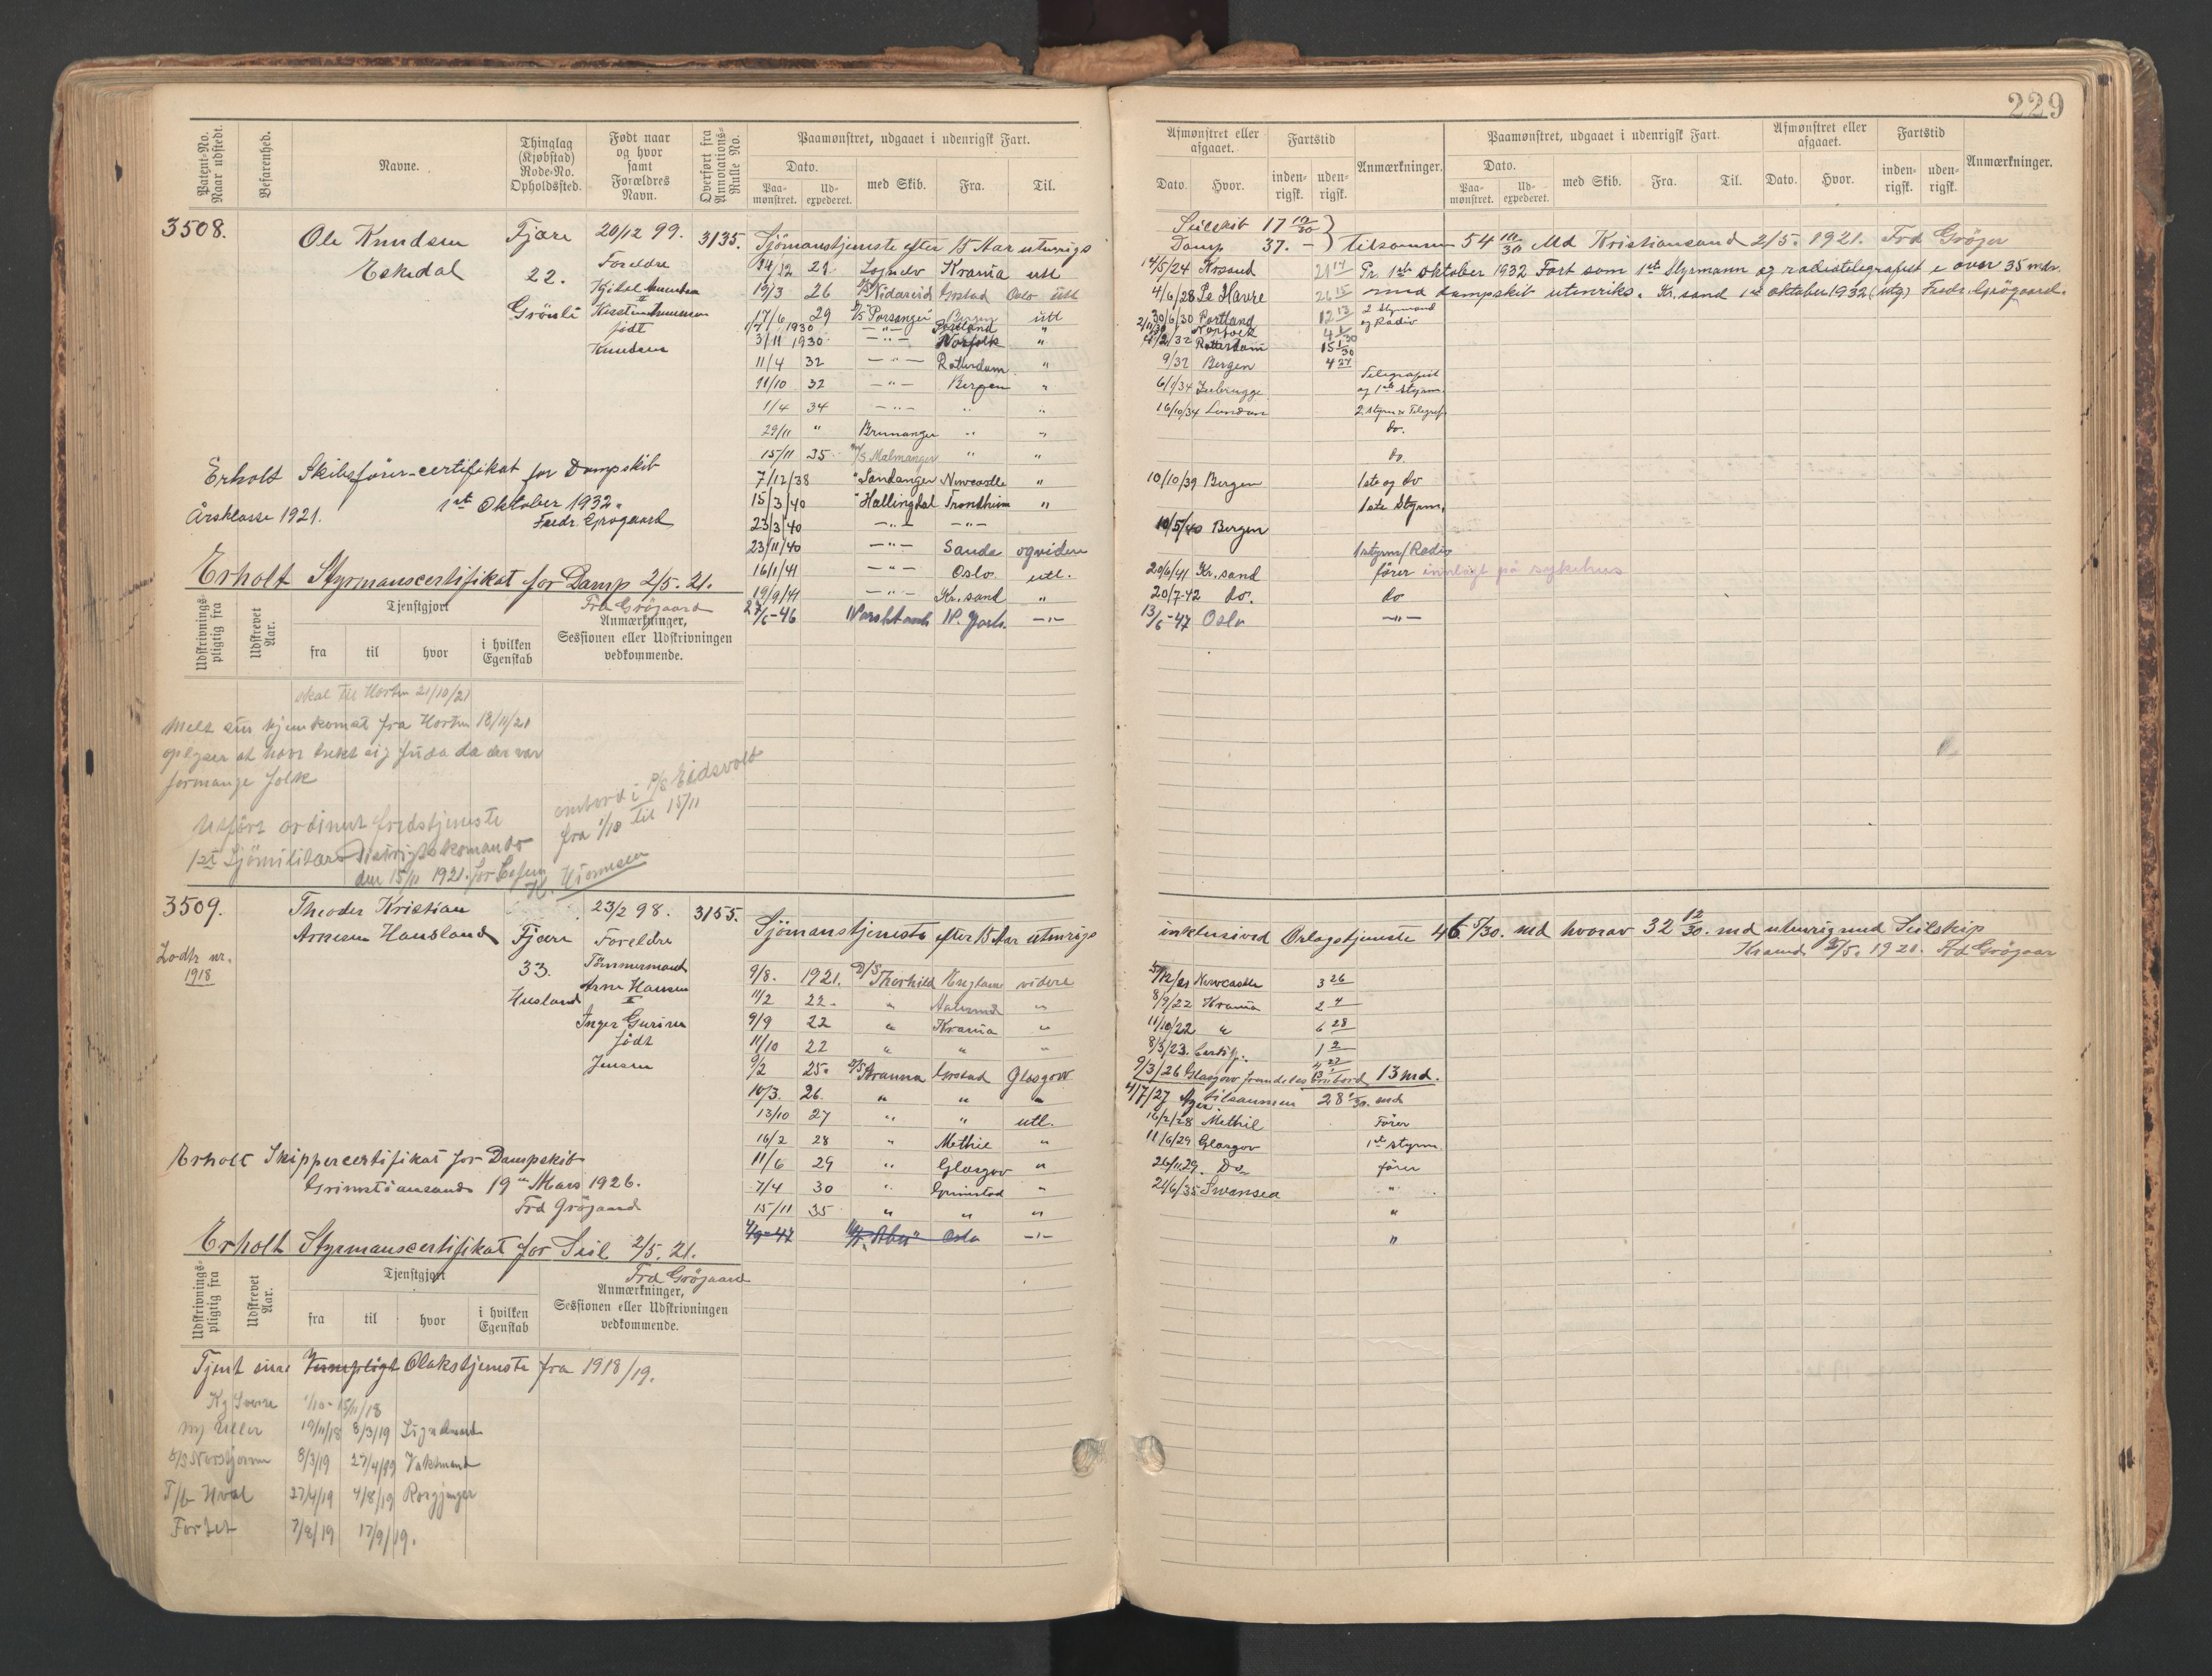 229
Patent-No. Naar udstedt.
Befarenhed.
Navne.
Thinglag (Kjøbstad) Rode-No. Opholdssted.
Født naar og hvor samt Forældres Navn.
Overført fra Annotations-Rulle No.
Paamønstret, udgaaet i udenrigsk Fart.
Dato.
Paa-mønstret.
Ud-expederet.
med Skib.
Fra.
Til.
Afmønstret eller afgaaet.
Dato.
Hvor.
Fartstid
inden-rigsk.
uden-rigsk.
Anmærkninger.
Paamønstret, udgaaet i udenrigsk Fart.
Dato.
Paa-mønstret.
Ud-expederet.
med Skib.
Fra.
Til.
Afmønstret eller afgaaet.
Dato.
Hvor.
Fartstid
inden-rigsk.
uden-rigsk.
Anmærkninger.
3508.
Ole Knudsen
Eskedal
Fjære
22.
Grönli
20/12 99.
Foreldre
Kittel Knudsen
födt
Knudsen
3135.
Sjömanstjeneste efter 15 Aar utenrigs
Seilskib 17 10/30
Damp 37. –
Tilsammen 54 10/30 Md Kristiansand 2/5. 1921. Frd Grögaard
24/12 21 Krania utl
14/5/24 Krsand
Pr. 1ste oktober 1932 Fart som 1ste Styrmann og radiotelegrafist i over 35 mdr.
19/3 26 Nidareid Grstad Oslo utl
4/6/28 Le Havre 26 15
med dampskib utenriks. Kr.sand 1ste oktober 1932 (utg) Fredr. Grögaard.
17/6 29 D/S Porsanger Bergen utl
30/6/30 Portland 12 13 2 Styrmand og Radio
1/7 1930 –"– Portland "
2/11/30 Norfolk
3/11 1930 –"– Norfolk "
Rotterdam 15 1/30
11/4 32 –"– Rotterdam "
9/32 Bergen 4 27
11/10 32 –"– Bergen "
6/1/34 Zeebrugge Telegrafist og 1ste styrm.
1/4 34 –"– " "
16/10/34 London 2 styrm & Telegraf
29/11 " Brunanger " "
do.
15/11 35 M/S Malmanger " "
do.
7/12/38 " Sandanger Newcastle "
10/10/39 Bergen 1ste og do
15/3/40 " Hallingdal Trondheim "
1ste Styrm.
23/3/40 –"– –"–
10/5/40 Bergen
23/11/40 –"– Sauda og videre
1 styrm/Radio
16/1/41 –"– Oslo. utl.
20/6/41 Kr.sand fører innlagt på sykehus
19/9/41 –"– Kr.sand "
20/7-42 do. do
27/6-46 N. York –"–
13/6-47 Oslo –"–
Erholt Skibsfører-certifikat for Dampskib
1ste Oktober 1932.
Årsklasse 1921.
Fredr. Grögaard
Erholt Styrmanscertifikat for Damp 2/5. 21.
Frd Grögaard
Udskrivnings-pligtig fra
Udskrevet Aar.
Tjenstgjort
fra
til
hvor
i hvilken Egenskab
Anmærkninger, Sessionen eller Udskrivningen vedkommende.
skal til Horten 21/10/21
Melt sin hjemkomst fra Horten 18/11/21
oplyser at have trukt sig frida da der var
formange folk
Utført ordinært fredstjeneste
ombord i P/S Eidsvold
fra 1/10 til 15/11
1st Sjömilitære Distrigtskomando
den 15/11 1921. for Chefen
3509.
Lodtr nr.
1918
Theodor Kristian
Arnesen Hausland
Fjære
33.
Husland
23/2 98.
Foreldre
Tömmermand
Arne Hansen
Inger Gurine
födt
Jensen
3155.
Sjömanstjeneste efter 15 Aar utenrigs
inklusived Orlogstjeneste 46 5/30. md hvorav 32 12/30. md utenrigs med Seilskip
Krsand 2/5. 1921. Frd Grögaard
9/8. 1921. D/S Thorhild England videre
Newcastle 3 26
11/2 22. " Aalesund "
8/9/22 Krania 2 4
9/9 22 " Krania "
11/10/22 " 6 28
11/10 22 " " "
8/3/23. 1 2
9/2 25. D/S Grstad Glasgow
9/3/26 Glasgow fremdeles ombord 13 md.
10/3. 26. " " "
4/7/27 tilsammen 28 /30. md
13/10 27 " " utl.
16/2/28 Methil Fører
16/2 28 " Methil "
11/6/29 Glasgov 1ste styrm
11/6 29 " Glasgov "
26/11.29. Do fører
7/4 30 " Grimstad "
21/6/35 Swansea "
15/11 35 " " "
"
4/9-47 Oslo –"–
"
Erholt Skippercertifikat for Dampskib
19de Mars 1926.
Frd Grögaard
Erholt Styrmanscertifikat for Seil 2/5. 21.
Frd Grögaard
Udskrivnings-pligtig fra
Udskrevet Aar.
Tjenstgjort
fra
til
hvor
i hvilken Egenskab
Anmærkninger, Sessionen eller Udskrivningen vedkommende.
Tjent sin Vernepligt fra 1918/19.
Kg Sverre 1/10 - 15/11/18
Uller 19/11/18 8/3/19
8/3/19 27/4/19 Vaktmand
T/b Hval 27/4/19 4/8/19 Rorgjenger
Fortet 7/8/19 17/9/19.